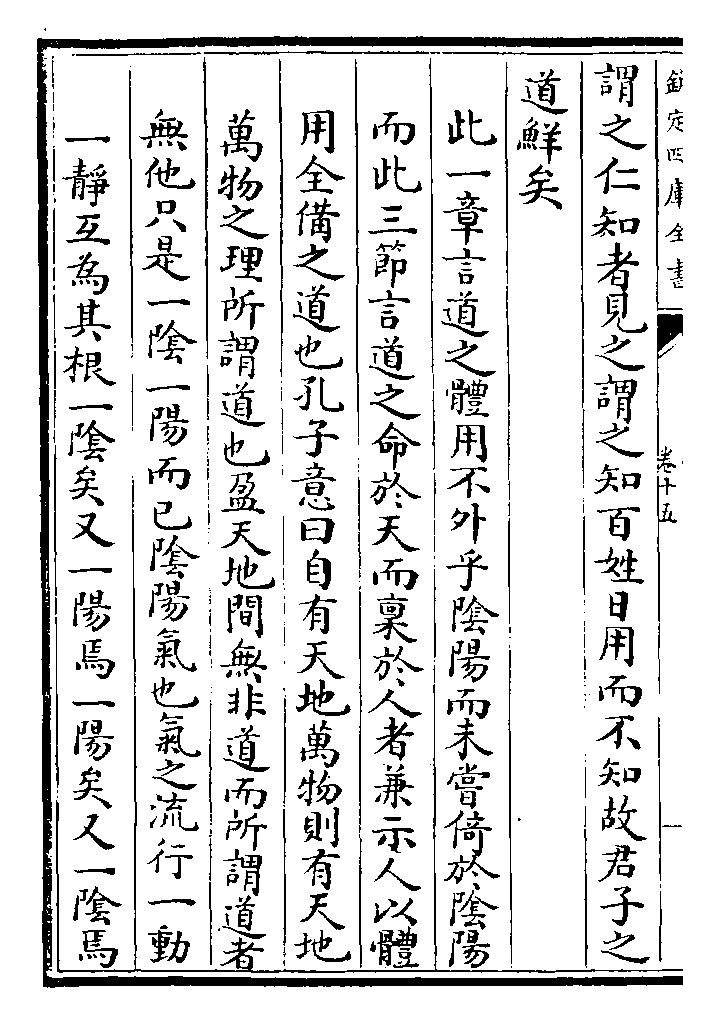 欽定四庫全書
卷十五
謂之仁知者見之謂之知百姓日用而不知故君子之
道鮮矣
此一章言道之體用不外乎陰陽而未嘗倚於陰陽
而此三節言道之命於天而稟於人者兼示人以體
用全備之道也孔子意曰自有天地萬物則有天地
萬物之理所謂道也盈天地間無非道而所謂道者
無他只是一陰一陽而已陰陽氣也氣之流行一動
一靜互為其根一陰矣又一陽焉一陽矣又一陰焉